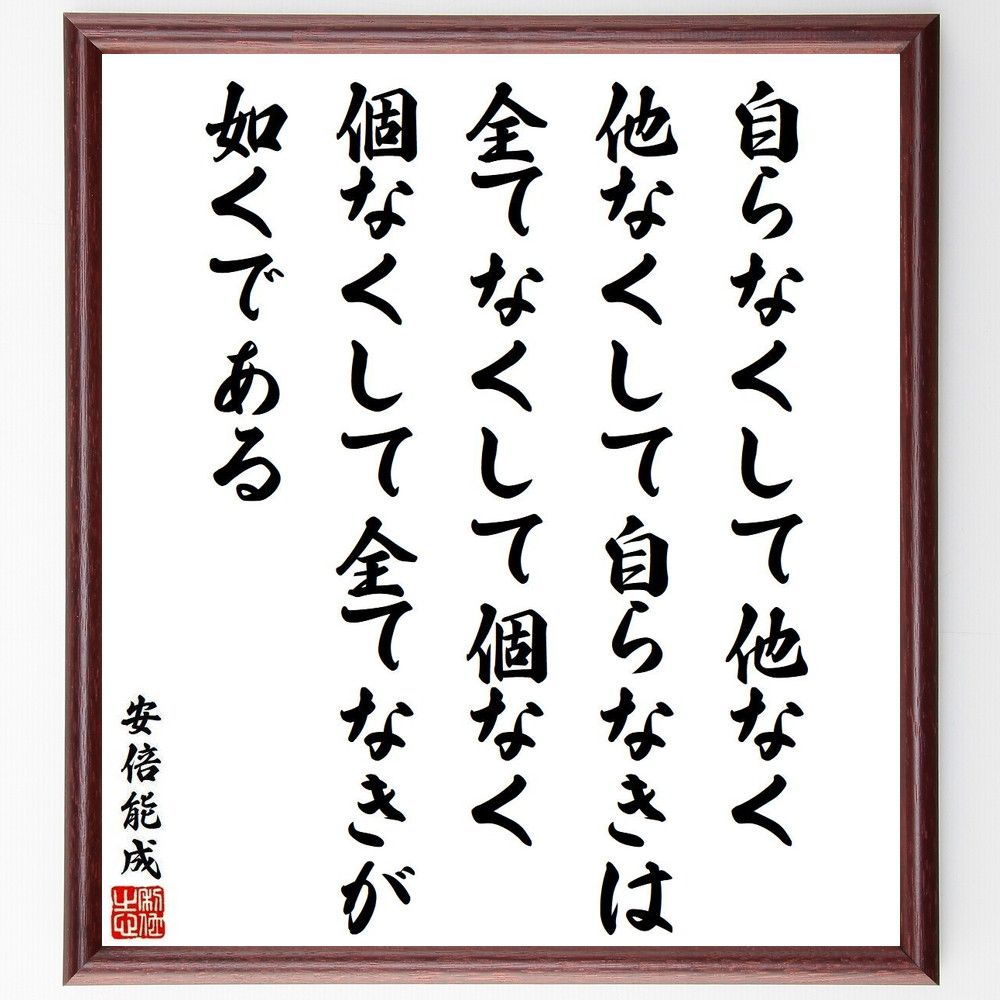 自らなくして他なく
他なくして自らなきは
全てなくして個なく
個なくして全てなきが
如くである
安倍能成